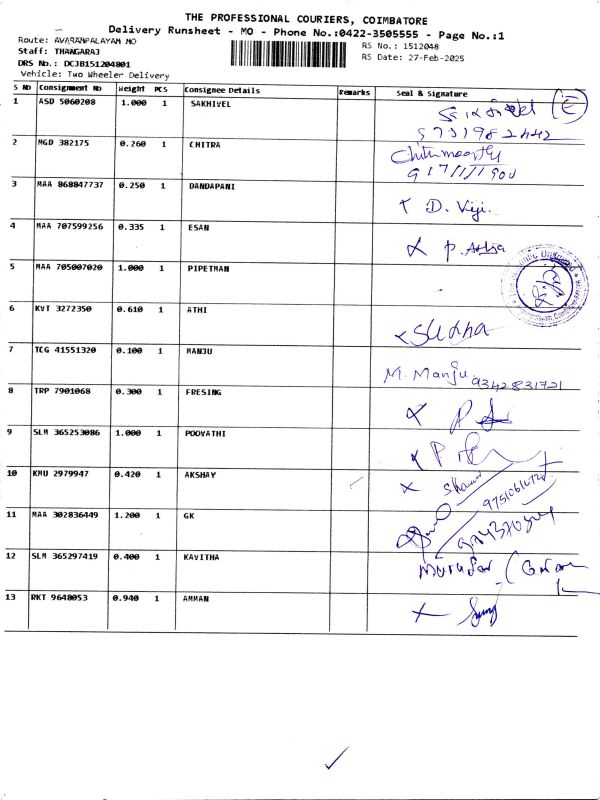 THE PROFESSIONAL COURIERS, COIMBATORE
Delivery Runsheet - MO - Phone No.:0422-3505555 - Page No.:1
Route: AVARAMPALAYAM MO
RS No.: 1512048
Staff: THANGARAJ
RS Date: 27-Feb-2025
DRS No.: DCJB151204801
Vehicle: Two Wheeler Delivery
S No Consignment No Weight PCS Consignee Details Remarks Seal & Signature
1 ASD 5060208 1.000 1 SAKHIVEL
2 MGD 382175 0.260 1 CHITRA
3 MAA 868847737 0.250 1 DANDAPANI D. Viji.
4 MAA 707599256 0.335 1 ESAN
5 MAA 705007020 1.000 1 PIPETMAN
6 KVT 3272350 0.610 1 ATHI
7 TCG 41551320 0.100 1 MANJU M. Manju 9342831721
8 TRP 7901068 0.300 1 FRESING
9 SLM 365253086 1.000 1 POOVATHI
10 KMU 2979947 0.420 1 AKSHAY
11 MAA 302836449 1.200 1 GK
12 SLM 365297419 0.400 1 KAVITHA
13 RKT 9648053 0.940 1 AMMAN